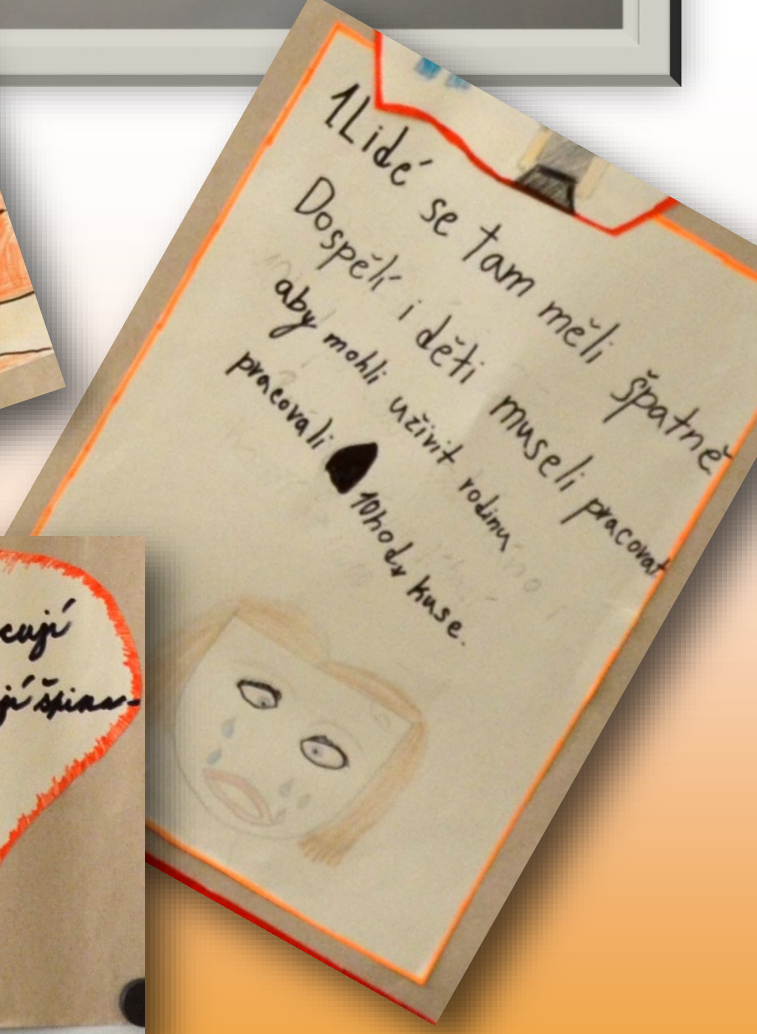 1Lidé se tam měli špatně
Dospělí i děti museli pracovat
aby mohli uživit rodinu
pracovali 10hodv kuse.
cují
jí špina-